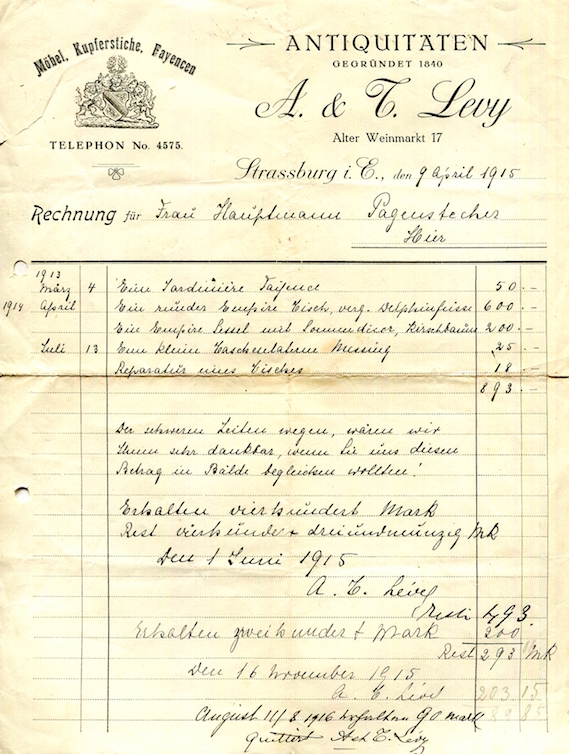 Möbel, Kupferstiche, Fayencen
TELEPHON No. 4575.
ANTIQUITÄTEN
GEGRÜNDET 1840
A. & T. Levy
Alter Weinmarkt 17
Strassburg i. E., den 9 April 1915
Rechnung für Frau Hauptmann Pagenstecher
Hier
1913
März 4 Eine Jardinière Fayence 50.-
1914 April Ein runder Empire Tisch, verg. Delphinfüsse 600.-
Ein Empire Sessel mit Kirschbaum 200.-
Juli 13 Eine kleine Taschenlaterne Messing 25.-
Reparatur eines Tisches 18.-
893.-
Der schweren Zeiten wegen, wären wir
Ihnen sehr dankbar, wenn Sie uns diesen
Betrag in Bälde begleichen wollten!
Erhalten vierhundert Mark
Rest vierhundert dreiundneunzig Mk
Den 1 Juni 1915
A. T. Levy
Rest 493.
Erhalten zweihundert Mark 200
Rest 293 Mk
Den 16 November 1915
A. T. Levy 203 15
August 11/8 1916 erhalten 90 mark 89 85
A & T. Levy